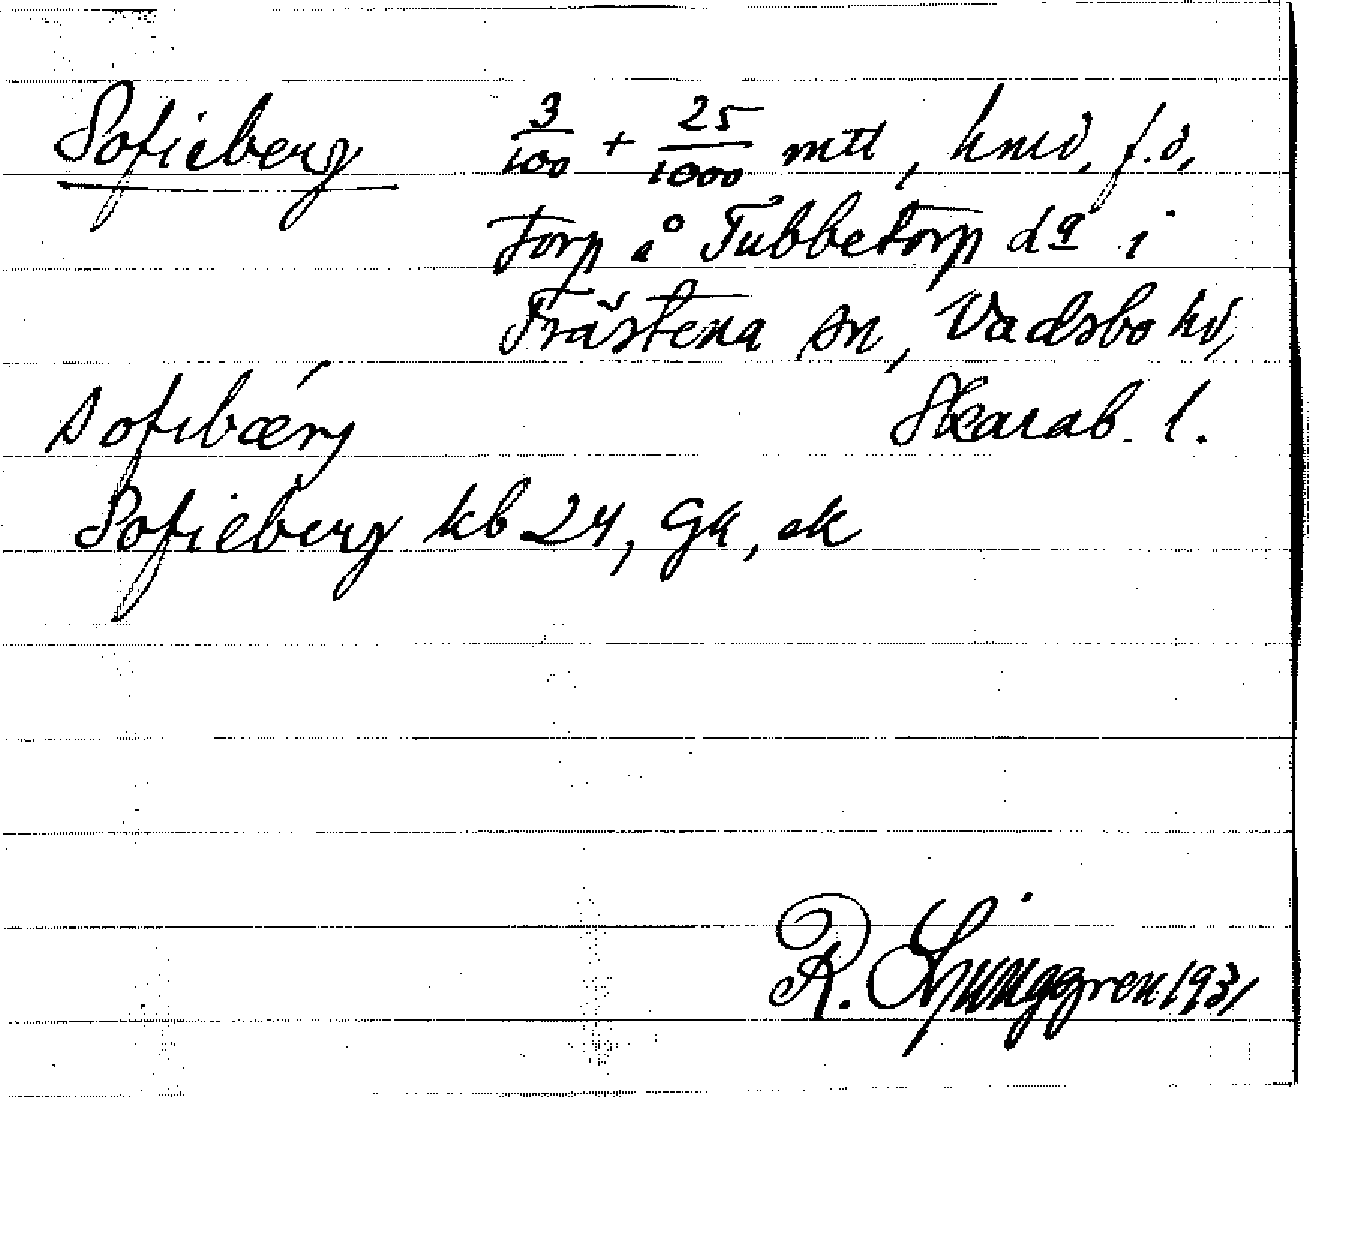 Sofieberg 3/100 + 25/1000 mtl, hmd, f.d.
torp å Tubbetorp dª i
Trästena sn, Vadsbo hd,
Skarab. l.
sofibærj
Sofieberg kb 24, Gk, ek
R. Ljunggren 1931